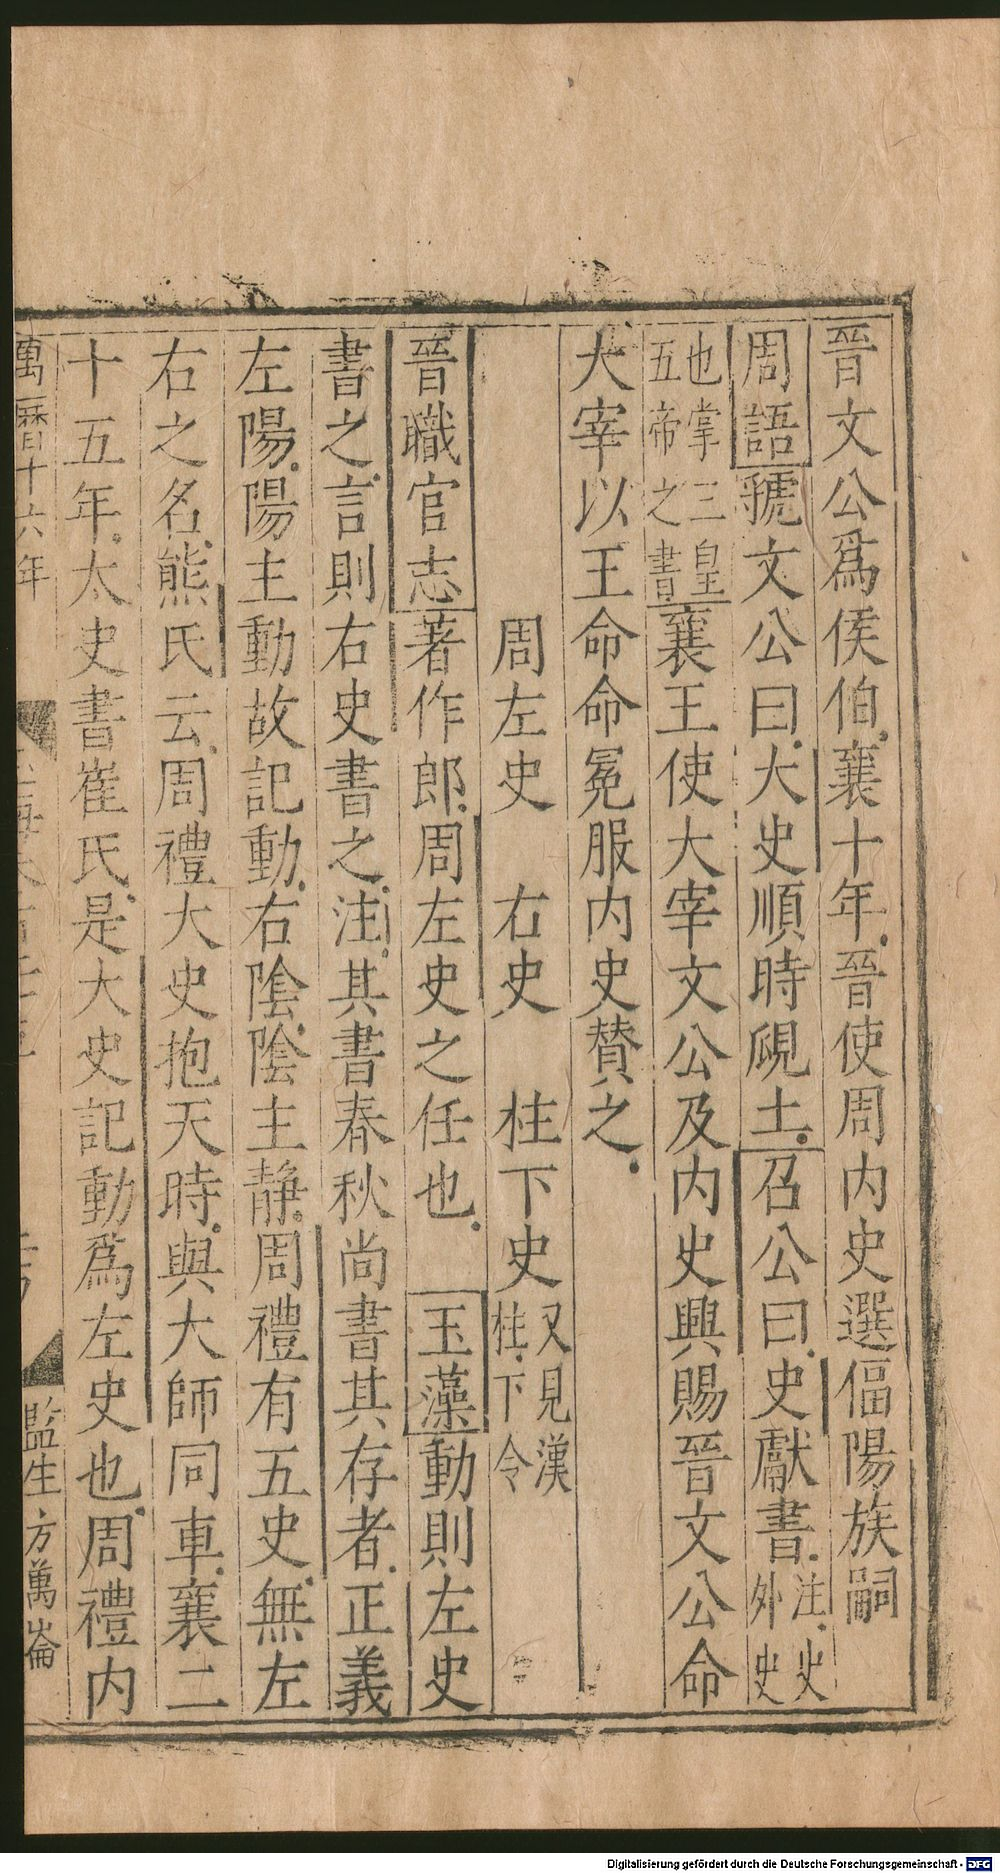 晉文公爲侯伯襄十年晉使周內史選偪陽族嗣
周語虢文公曰大史順時覛土召公曰史獻書注史外史
也掌三皇五帝之書襄王使大宰文公及內史興賜晉文公命
大宰以王命命冕服內史贊之
周左史 右史 柱下史又見漢柱下令
晉職官志著作郎周左史之任也 玉藻動則左史
書之言則右史書之注其書春秋尚書其存者正義
左陽陽主動故記動右陰陰主靜周禮有五史無左
右之名熊氏云周禮大史抱天時與大師同車襄二
十五年太史書崔氏是大史記動爲左史也周禮內
萬曆十六年
監生方萬崙
Digitalisierung gefördert durch die Deutsche Forschungsgemeinschaft - DFG